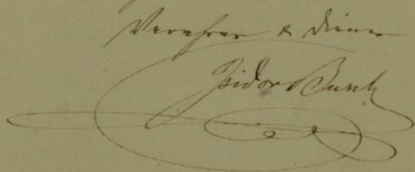 Verehrer & Diener
Isidor Bush